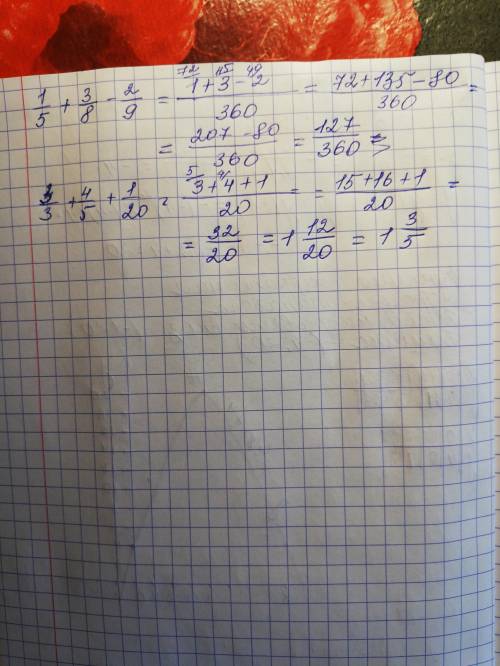 1/5 + 3/8 - 2/9 = (72 45 40) (1+3-2)/360 = (72+135-80)/360 =
= (207-80)/360 = 127/360
3/3 + 4/5 + 1/20 = (5 4) (3+4+1)/20 = = (15+16+1)/20 =
= 32/20 = 1 12/20 = 1 3/5